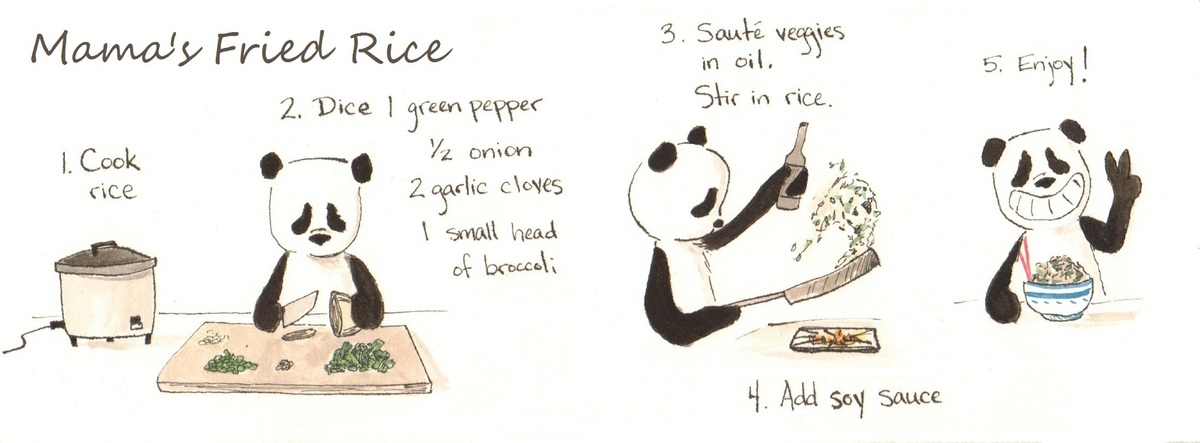 Mama's Fried Rice
1. Cook
rice
2. Dice 1 green pepper
½ onion
2 garlic cloves
1 small head
of broccoli
3. Sauté veggies
in oil.
Stir in rice.
4. Add soy sauce
5. Enjoy!